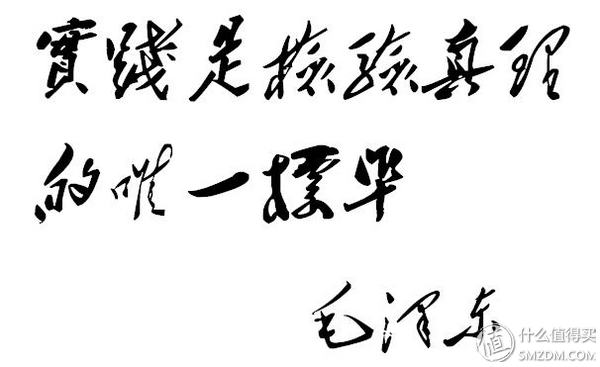 實踐是檢驗真理
的唯一標準
毛泽东
值 什么值得买
SMZDM.COM